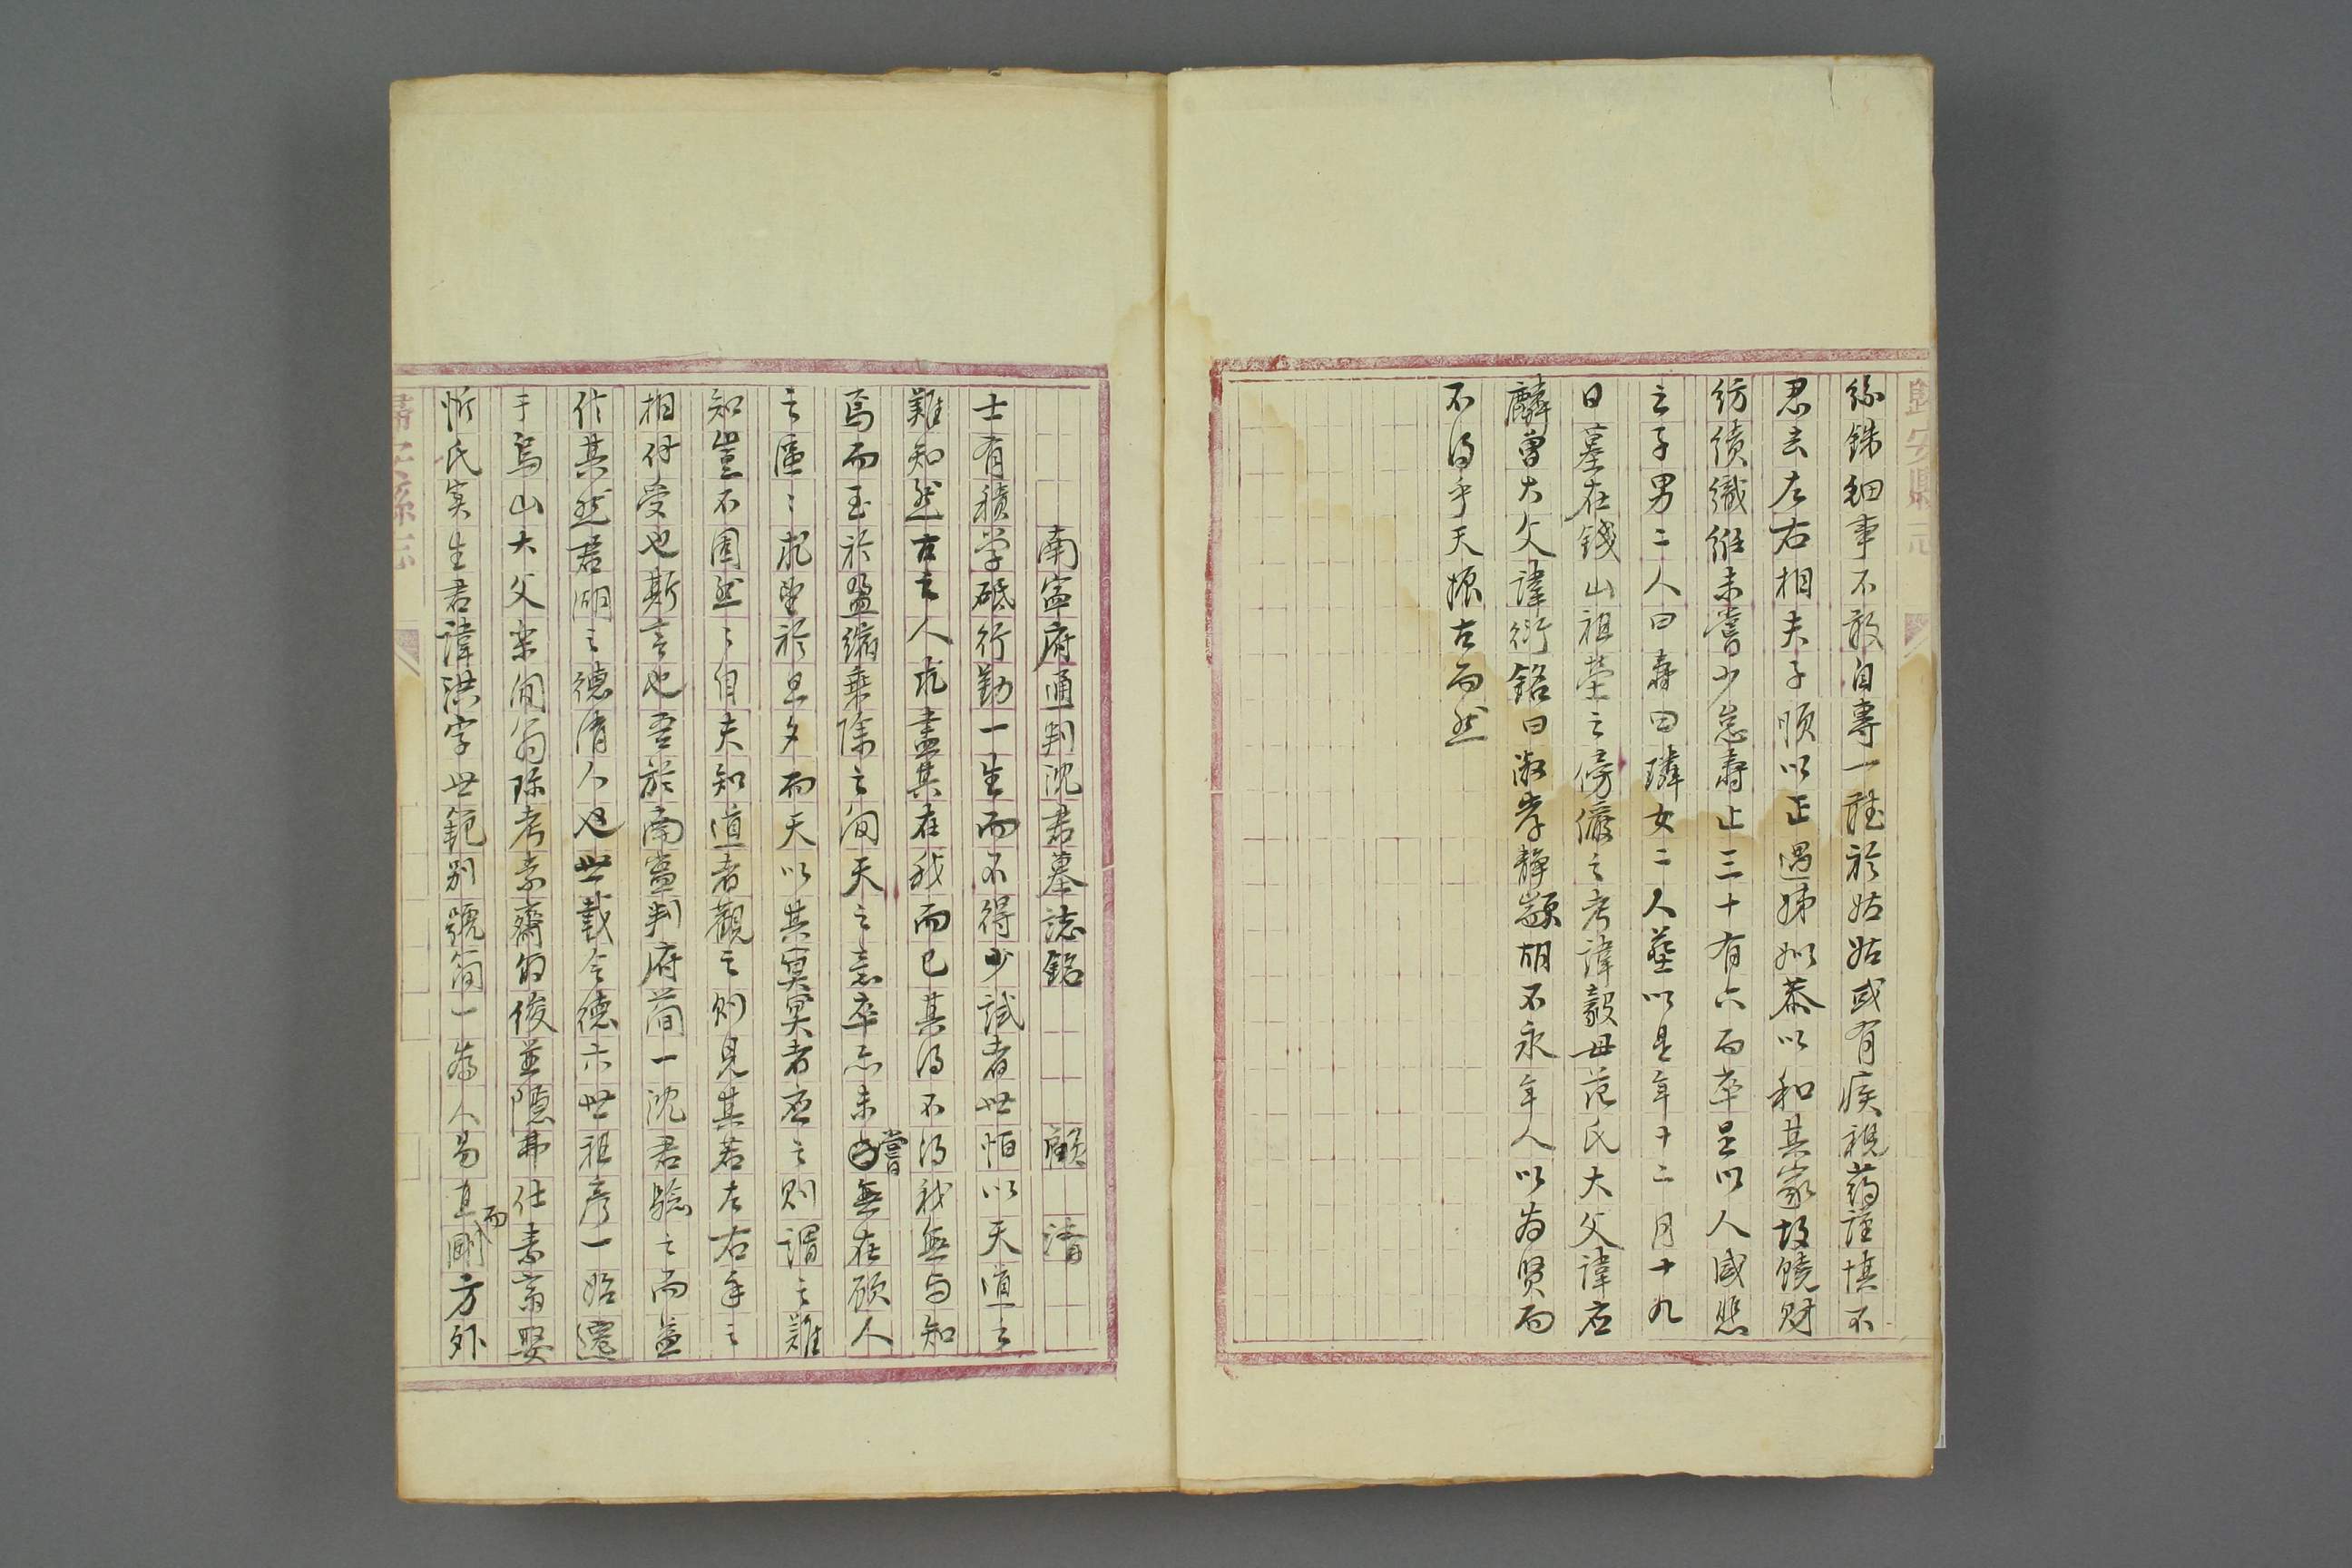 絲銖細事不敢自專一聽於姑姑或有疾視藥謹慎不
忍去左右相夫子順以正遇娣姒恭以和其家故饒財
紡績織維未嘗少怠壽止三十有六而卒呈以人咸悲
之子男二人曰壽曰璘女二人葬以是年十二月十九
日墓在錢山祖塋之傍儼之考諱毅母范氏大父諱应
麟曾大父諱衍銘曰淑孝靜顓胡不永年人以為贤而
不得乎天振古而然
南寍府通判沈君墓誌銘 顧清
士有積学砥行勤一生而不得少試者世怕以天道之
難知然古之人亢盡其在我而已其得不得我無与知
焉而玉於盈縮乘除之间天之意卒亦未嘗無在顾人
之區區求望於旦夕而天以其冥冥者应之則謂之難
知豈不固然然自夫知道者觀之則見其若左右手之
相付受也斯言也吾於南寍判府简一沈君驗之而益
信其然君湖之德清人也世載令德六世祖彥一始遷
于烏山大父樂间翁珎考素齋翁俊並隱弗仕素翁娶
忻氏实生君諱洪字世範别號简一為人易直而剛方外
歸安縣志
歸安縣志